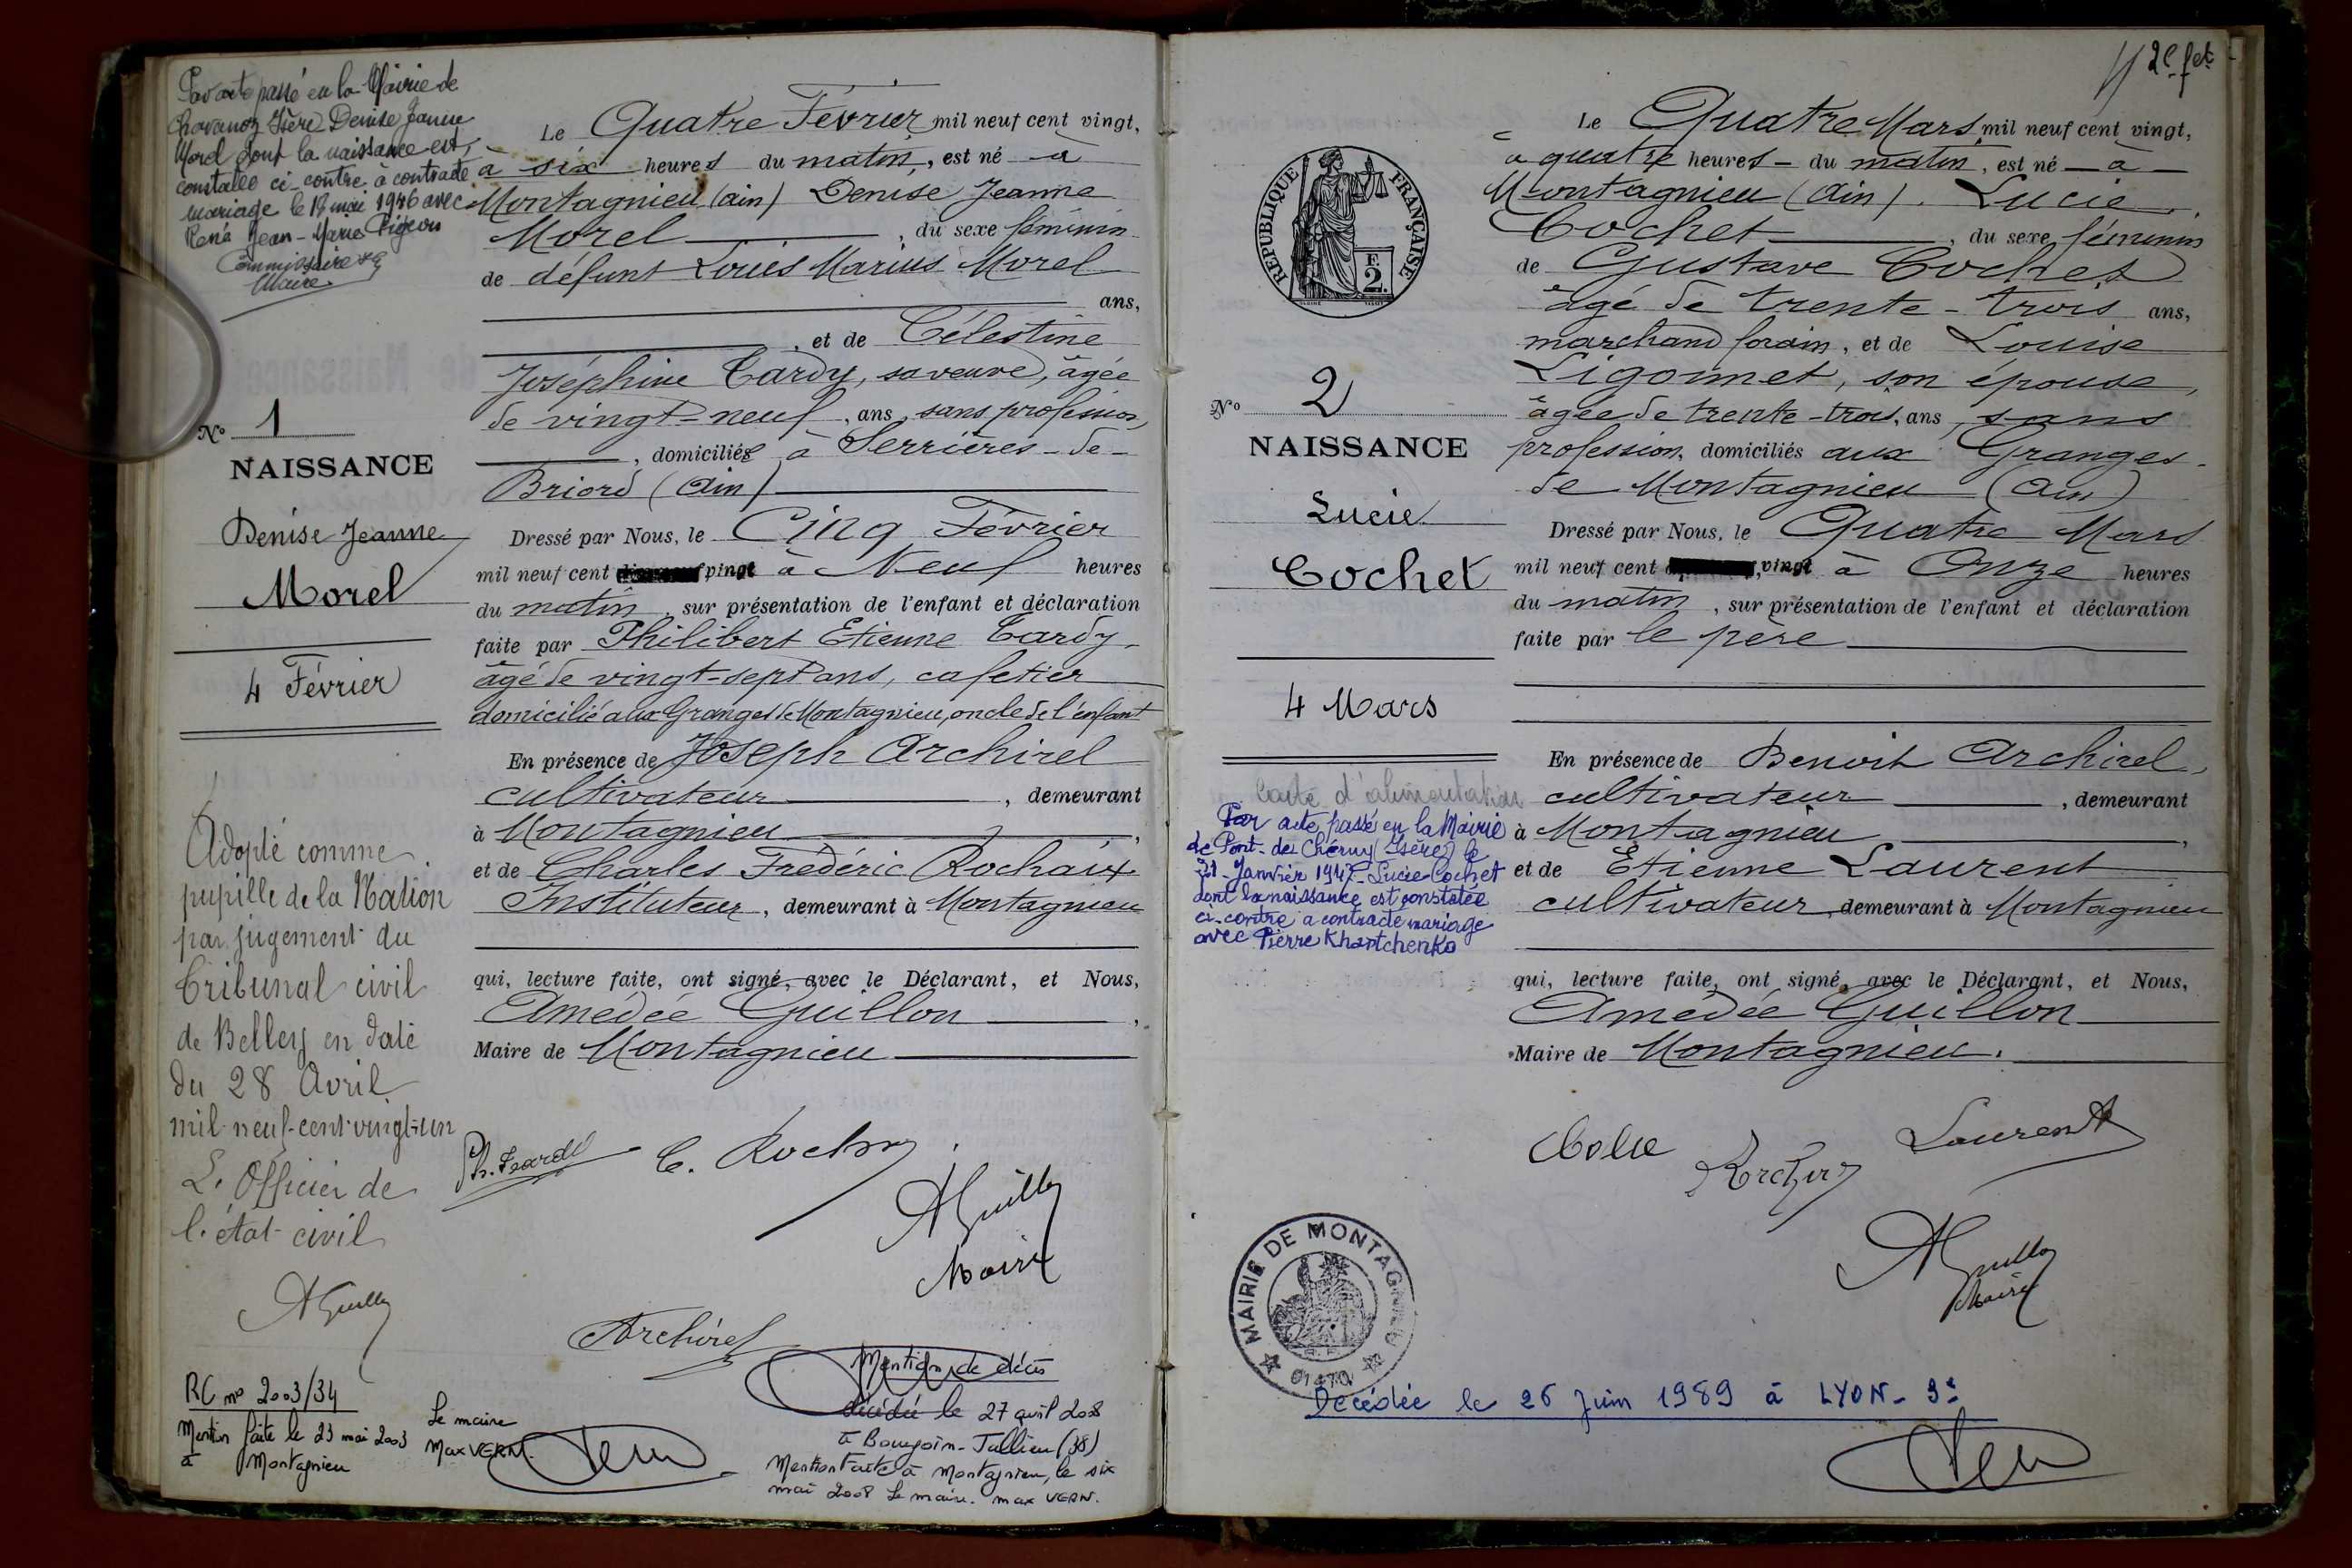 Par acte passé en la Mairie de
Chavanoz Isère Denise Jeanne
Morel dont la naissance est
constatée ci-contre a contracté
mariage le 17 mai 1946 avec
René Jean-Marie Pigeon
Maire
N° 1
NAISSANCE
Denise Jeanne
Morel
4 Février
Adopté comme
pupille de la Nation
par jugement du
Tribunal civil
de Belley en date
du 28 Avril
mil-neuf-cent-vingt-un
L'Officier de
l'état-civil
AGuillon
RC n° 2003/34
Mention faite le 23 mai 2003
à Montagnieu
Le maire
Max VERN.
Le Quatre Février mil neuf cent vingt,
à six heures du matin, est né à
Montagnieu (Ain) Denise Jeanne
Morel, du sexe féminin
de défunt Louis Marius Morel
ans,
, et de Célestine
Joséphine Tardy, sa veuve, âgée
de vingt-neuf, ans, sans profession,
, domiciliée à Serrières-de-
Briord (Ain)
Dressé par Nous, le Cinq Février
mil neuf cent vingt à Neuf heures
du matin, sur présentation de l'enfant et déclaration
faite par Philibert Etienne Tardy,
âgé de vingt-sept ans, cafetier
domicilié aux Granges de Montagnieu, oncle de l'enfant
En présence de Joseph Archirel
cultivateur, demeurant
à Montagnieu,
et de Charles Frédéric Rochaix
Instituteur, demeurant à Montagnieu
qui, lecture faite, ont signé, avec le Déclarant, et Nous,
Amédée Guillon,
Maire de Montagnieu
Ph. Tardy
C. Rochaix
AGuillon
Maire
Archirel
Mention de décès
décédée le 27 avril 2008
à Bourgoin-Jallieu (38)
Mention faite à Montagnieu, le six
mai 2008 Le maire. Max VERN.
2e fet
RÉPUBLIQUE FRANÇAISE
F.
2.
N° 2
NAISSANCE
Lucie
Cochet
4 Mars
Carte d'alimentation
Par acte passé en la Mairie
de Pont-de-Chéruy (Isère) le
31 Janvier 1947 Lucie Cochet
dont la naissance est constatée
ci-contre a contracté mariage
avec Pierre Khartchenko
Le Quatre Mars mil neuf cent vingt,
à quatre heures du matin, est né à
Montagnieu (Ain). Lucie
Cochet, du sexe féminin
de Gustave Cochet
âgé de trente-trois ans,
marchand forain, et de Louise
Ligonnet, son épouse,
âgée de trente-trois, ans, sans
profession, domiciliés aux Granges-
de Montagnieu (Ain)
Dressé par Nous, le Quatre Mars
mil neuf cent vingt à Onze heures
du matin, sur présentation de l'enfant et déclaration
faite par le père
En présence de Benoit Archirel,
cultivateur, demeurant
à Montagnieu,
et de Etienne Laurent
cultivateur, demeurant à Montagnieu
qui, lecture faite, ont signé, avec le Déclarant, et Nous,
Amédée Guillon
Maire de Montagnieu.
Laurent
AGuillon
Maire
MAIRIE DE MONTAGNIEU
R.F.
01470
Décédée le 26 Juin 1989 à LYON-3e